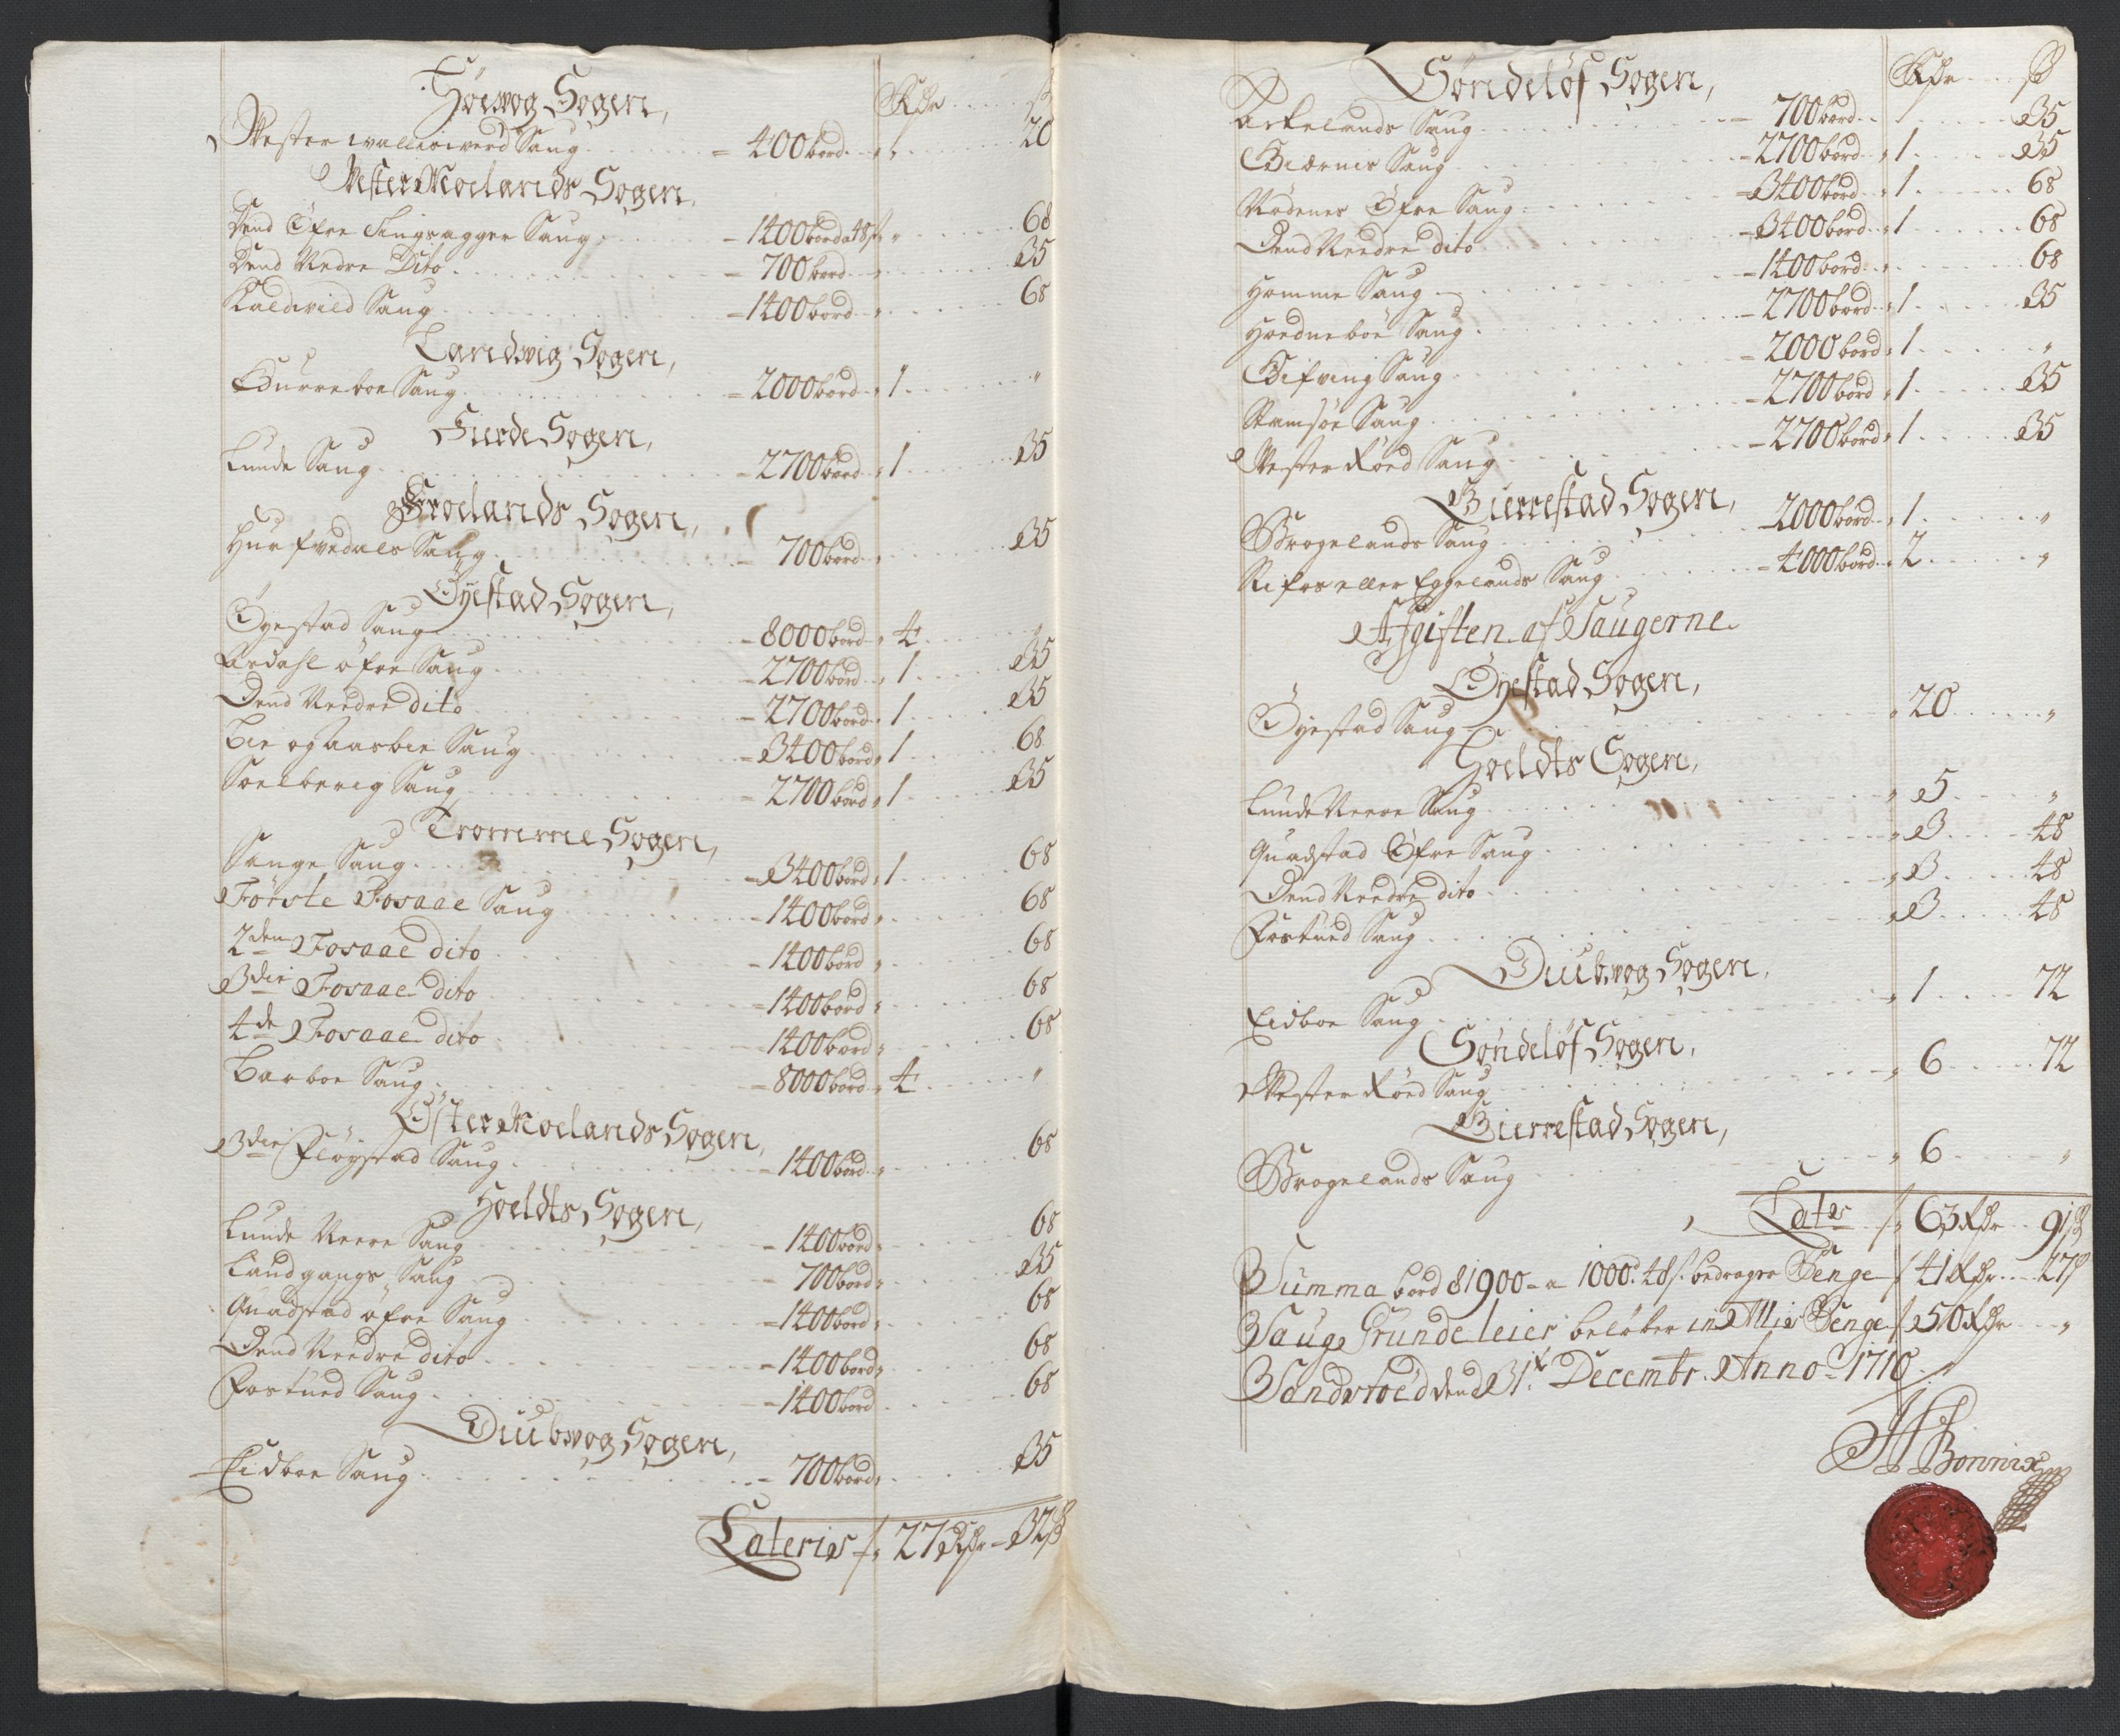 Høevog Sogen,
Rdr ß
Westerwalleswerd Saug - 400 bord " " 20
Wester Moelands Sogen.
Dend Öfre Tingsagger Saug - 1400 bord a 48 ß " 68
Dend Nedre Dito - 700 bord " 35
Kaldvild Saug - 1400 bord " 68
Landwig Sogen,
Burreboe Saug - 2000 bord " 1 "
Fierde Sogen,
Lunde Saug - 2700 bord " 1 35
Froelands Sogen,
Hurfvedals Saug - 700 bord " 35
Öyestad Sogen,
Öyestad Saug - 8000 bord " 4 "
Asdahl öfre Saug - 2700 bord " 1 35
Dend Needre dito - 2700 bord " 1 35
Bie og Aasbie Saug - 3400 bord " 1 68
Soelberig Saug - 2700 bord " 1 35
Tromme Sogen,
Sange Saug - 3400 bord " 1 68
Förste Fosaae Saug - 1400 bord " 68
2den Fosaae dito - 1400 bord " 68
3die Fosaae dito - 1400 bord " 68
4de Fosaae dito - 1400 bord " 68
Barboe Saug - 8000 bord " 4 "
Öster Moelands Sogen,
3die Flöystad Saug - 1400 bord " 68
Hoeldts Sogen,
Lunde Neere Saug - 1400 bord " 68
Landgangs Saug - 700 bord " 35
Quadstad öfre Saug - 1400 bord " 68
Dend Needre dito - 1400 bord " 68
Fostued Saug - 1400 bord 68
Diubwog Sogen,
Eidboe Saug - 700 bord " 35
Lateris " 27 Rdr - 32 ß
Søndeløf Sogen,
Rdr ß
Askelands Saug - 700 bord 35
Biærnes Saug - 2700 bord " 1 35
Nödenes Öfre Saug - 3400 bord " 1 68
Dend Needre dito - 3400 bord " 1 68
Homme Saug - 1400 bord " 68
Hoedneboe Saug - 2700 bord " 1 35
Gifving Saug - 2000 bord " 1 "
Ramsöe Saug - 2700 bord " 1 35
Wester Röed Saug - 2700 bord " 1 35
Gierrestad Sogen,
Brogelands Saug - 2000 bord " 1 "
Rifos eller Eggelands Saug - 4000 bord " 2 "
Afgiften af Saugerne
Öyestad Sogen,
Öyestad Saug " 20 "
Hoeldts Sogen,
Lunde Neere Saug " 5 "
Quadstad Öfre Saug " 3 48
Dend Needre dito " 3 48
Fostued Saug " 3 48
Diubwog Sogen,
Eidboe Saug " 1 72
Søndeløf Sogen,
Wester Röed Saug " 6 72
Gierrestad Sogen,
Brogelands Saug " 6 "
Lates " 63 Rdr 91 ß
Summa bord 81900 - a 1000: 48 ß. bedrager Penge 41 Rdr 27 ß
Sauge Grundeleier beløber in Alles Penge 50 Rdr "
Sandstoed dend 31t Decembr. Anno - 1710